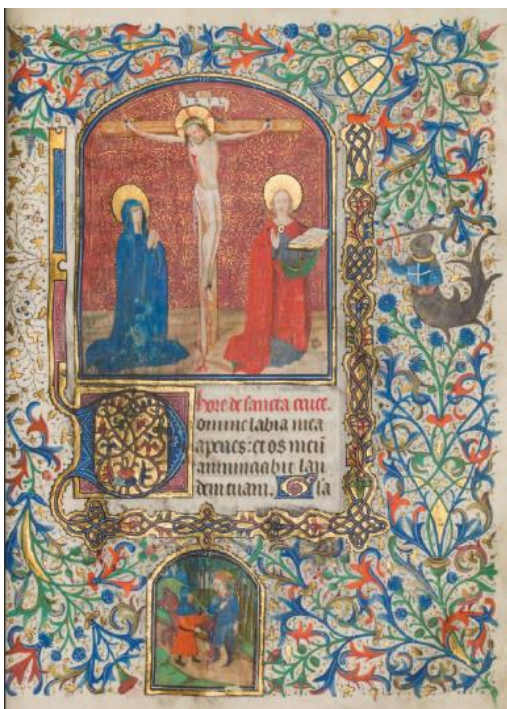 hore de sancta cruce.
omine labia mea
aperies: et os meū
annunciabit lau
dem tuam. Gla